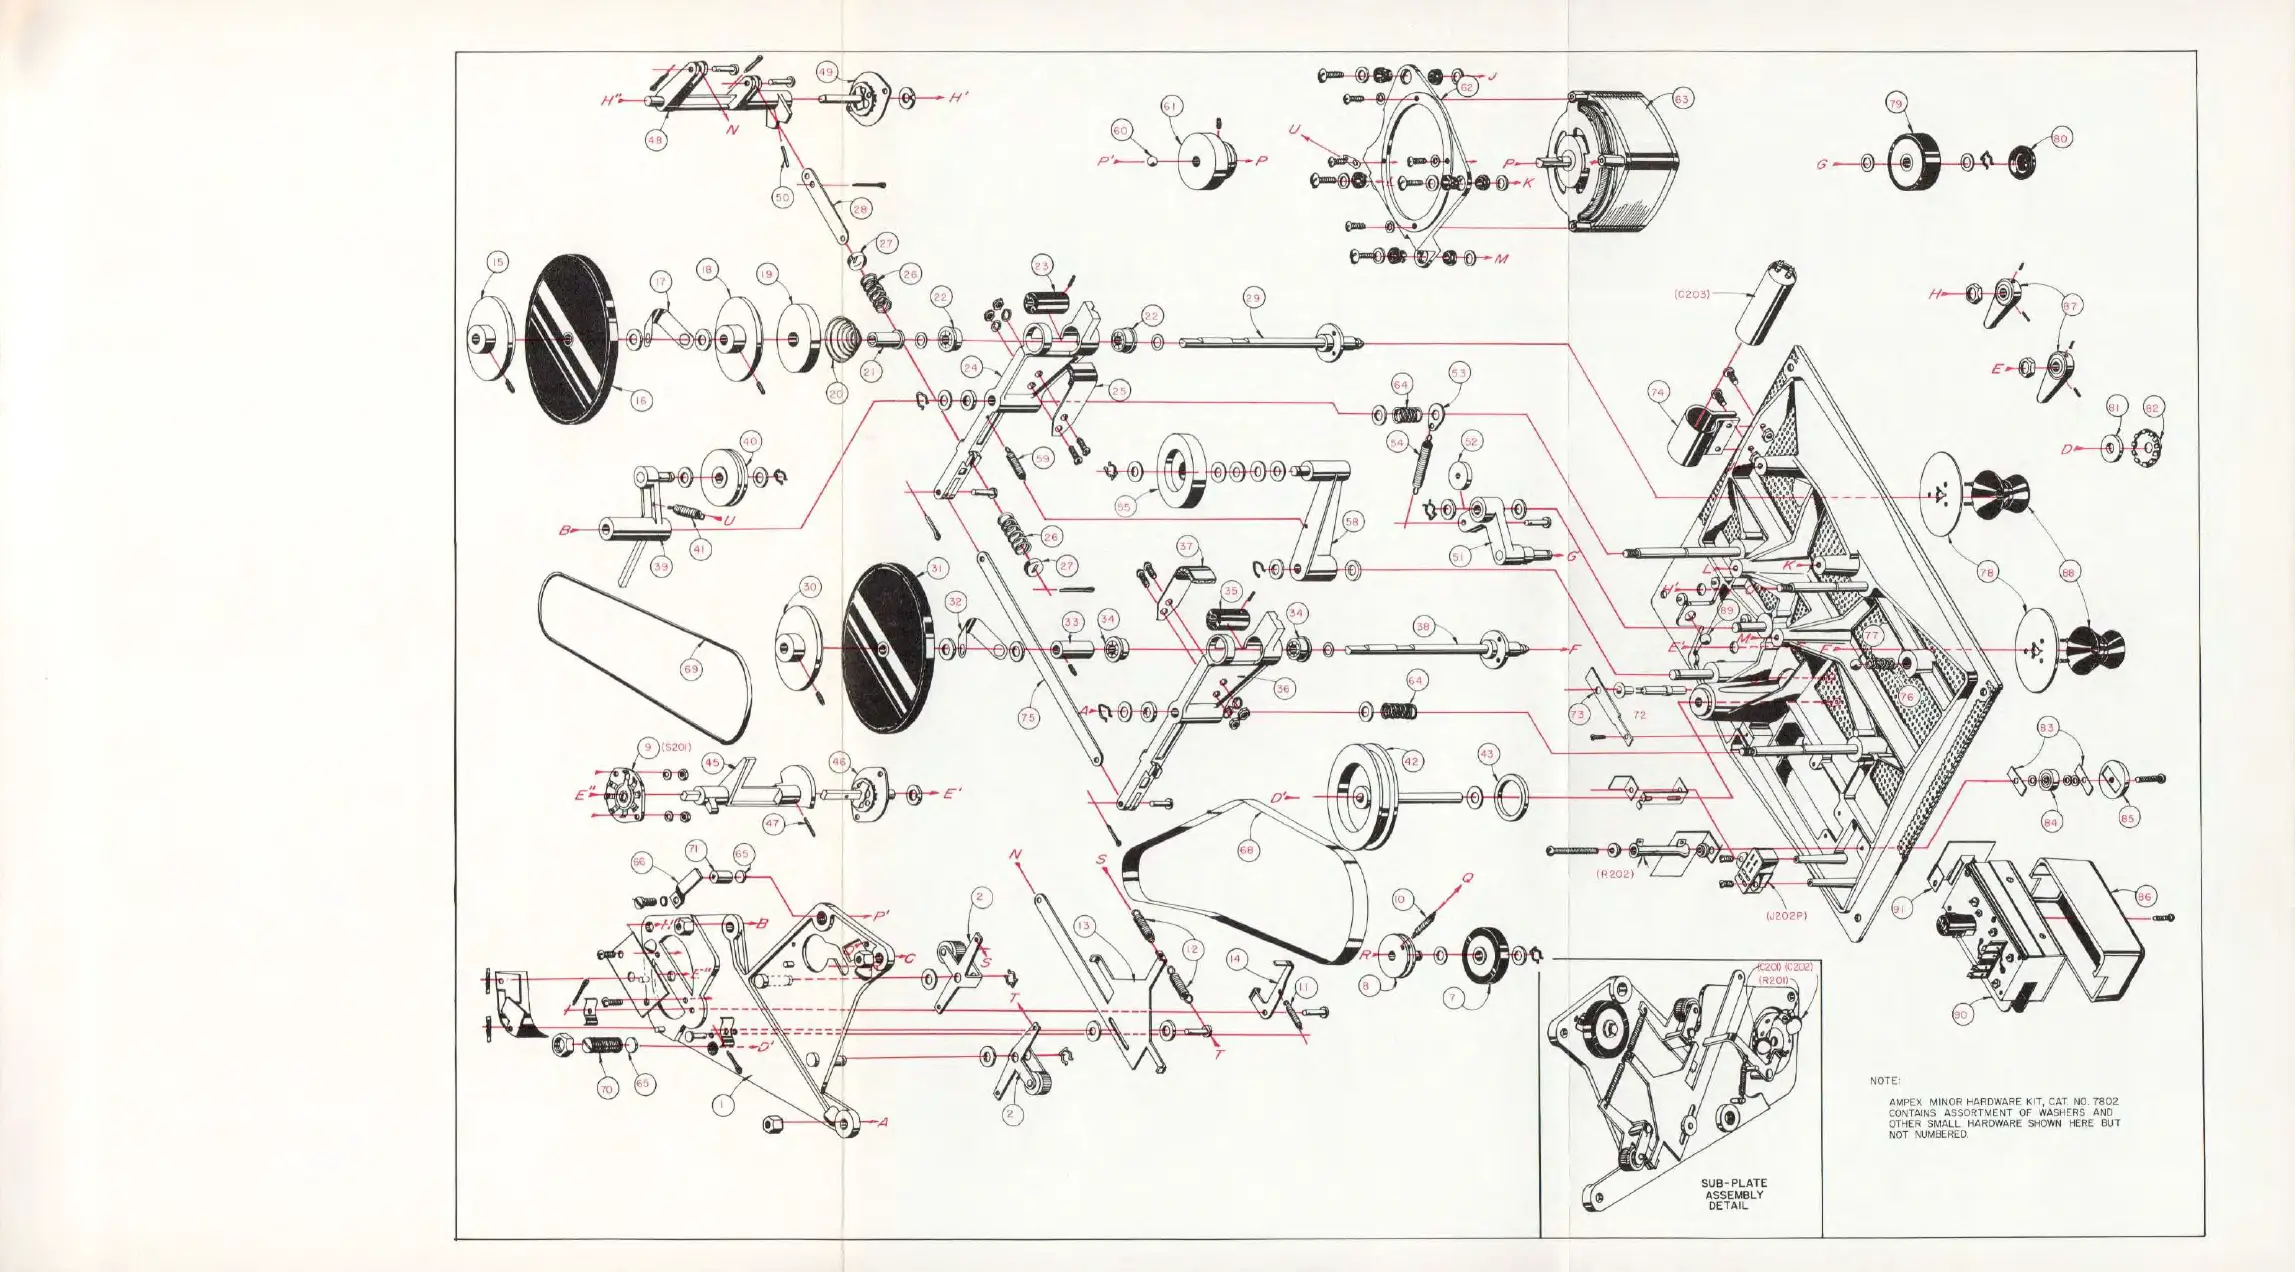 49 H" H' J 62 63
48 N 61 60 P' P U P K 79 80 G
50 28 M
27 26
15 18 19 17 23 22 22 29 (C203) H 87
16 20 21 24 25 64 53 74 E
40 59 54 52 81 82 D
B U 41 39 55 58 51 G' 78 88
26 27 37
30 31 32 33 34 35 34 38 F L K H' 89 M E' F 77 76
69 75 36 A 64 73 72
9 (S201) 45 46 E" E' 47
42 43 D' 83 84 85
68 (R202) (J202P) 91 86
66 71 65 N S Q 10
H" B P' 2 13 12 14 R 8 7 11
E" C S T T
70 65 D' 1 2 A
(C201) (C202)
(R201)
90
SUB-PLATE
ASSEMBLY
DETAIL
NOTE:
AMPEX MINOR HARDWARE KIT, CAT. NO. 7802
CONTAINS ASSORTMENT OF WASHERS AND
OTHER SMALL HARDWARE SHOWN HERE BUT
NOT NUMBERED.